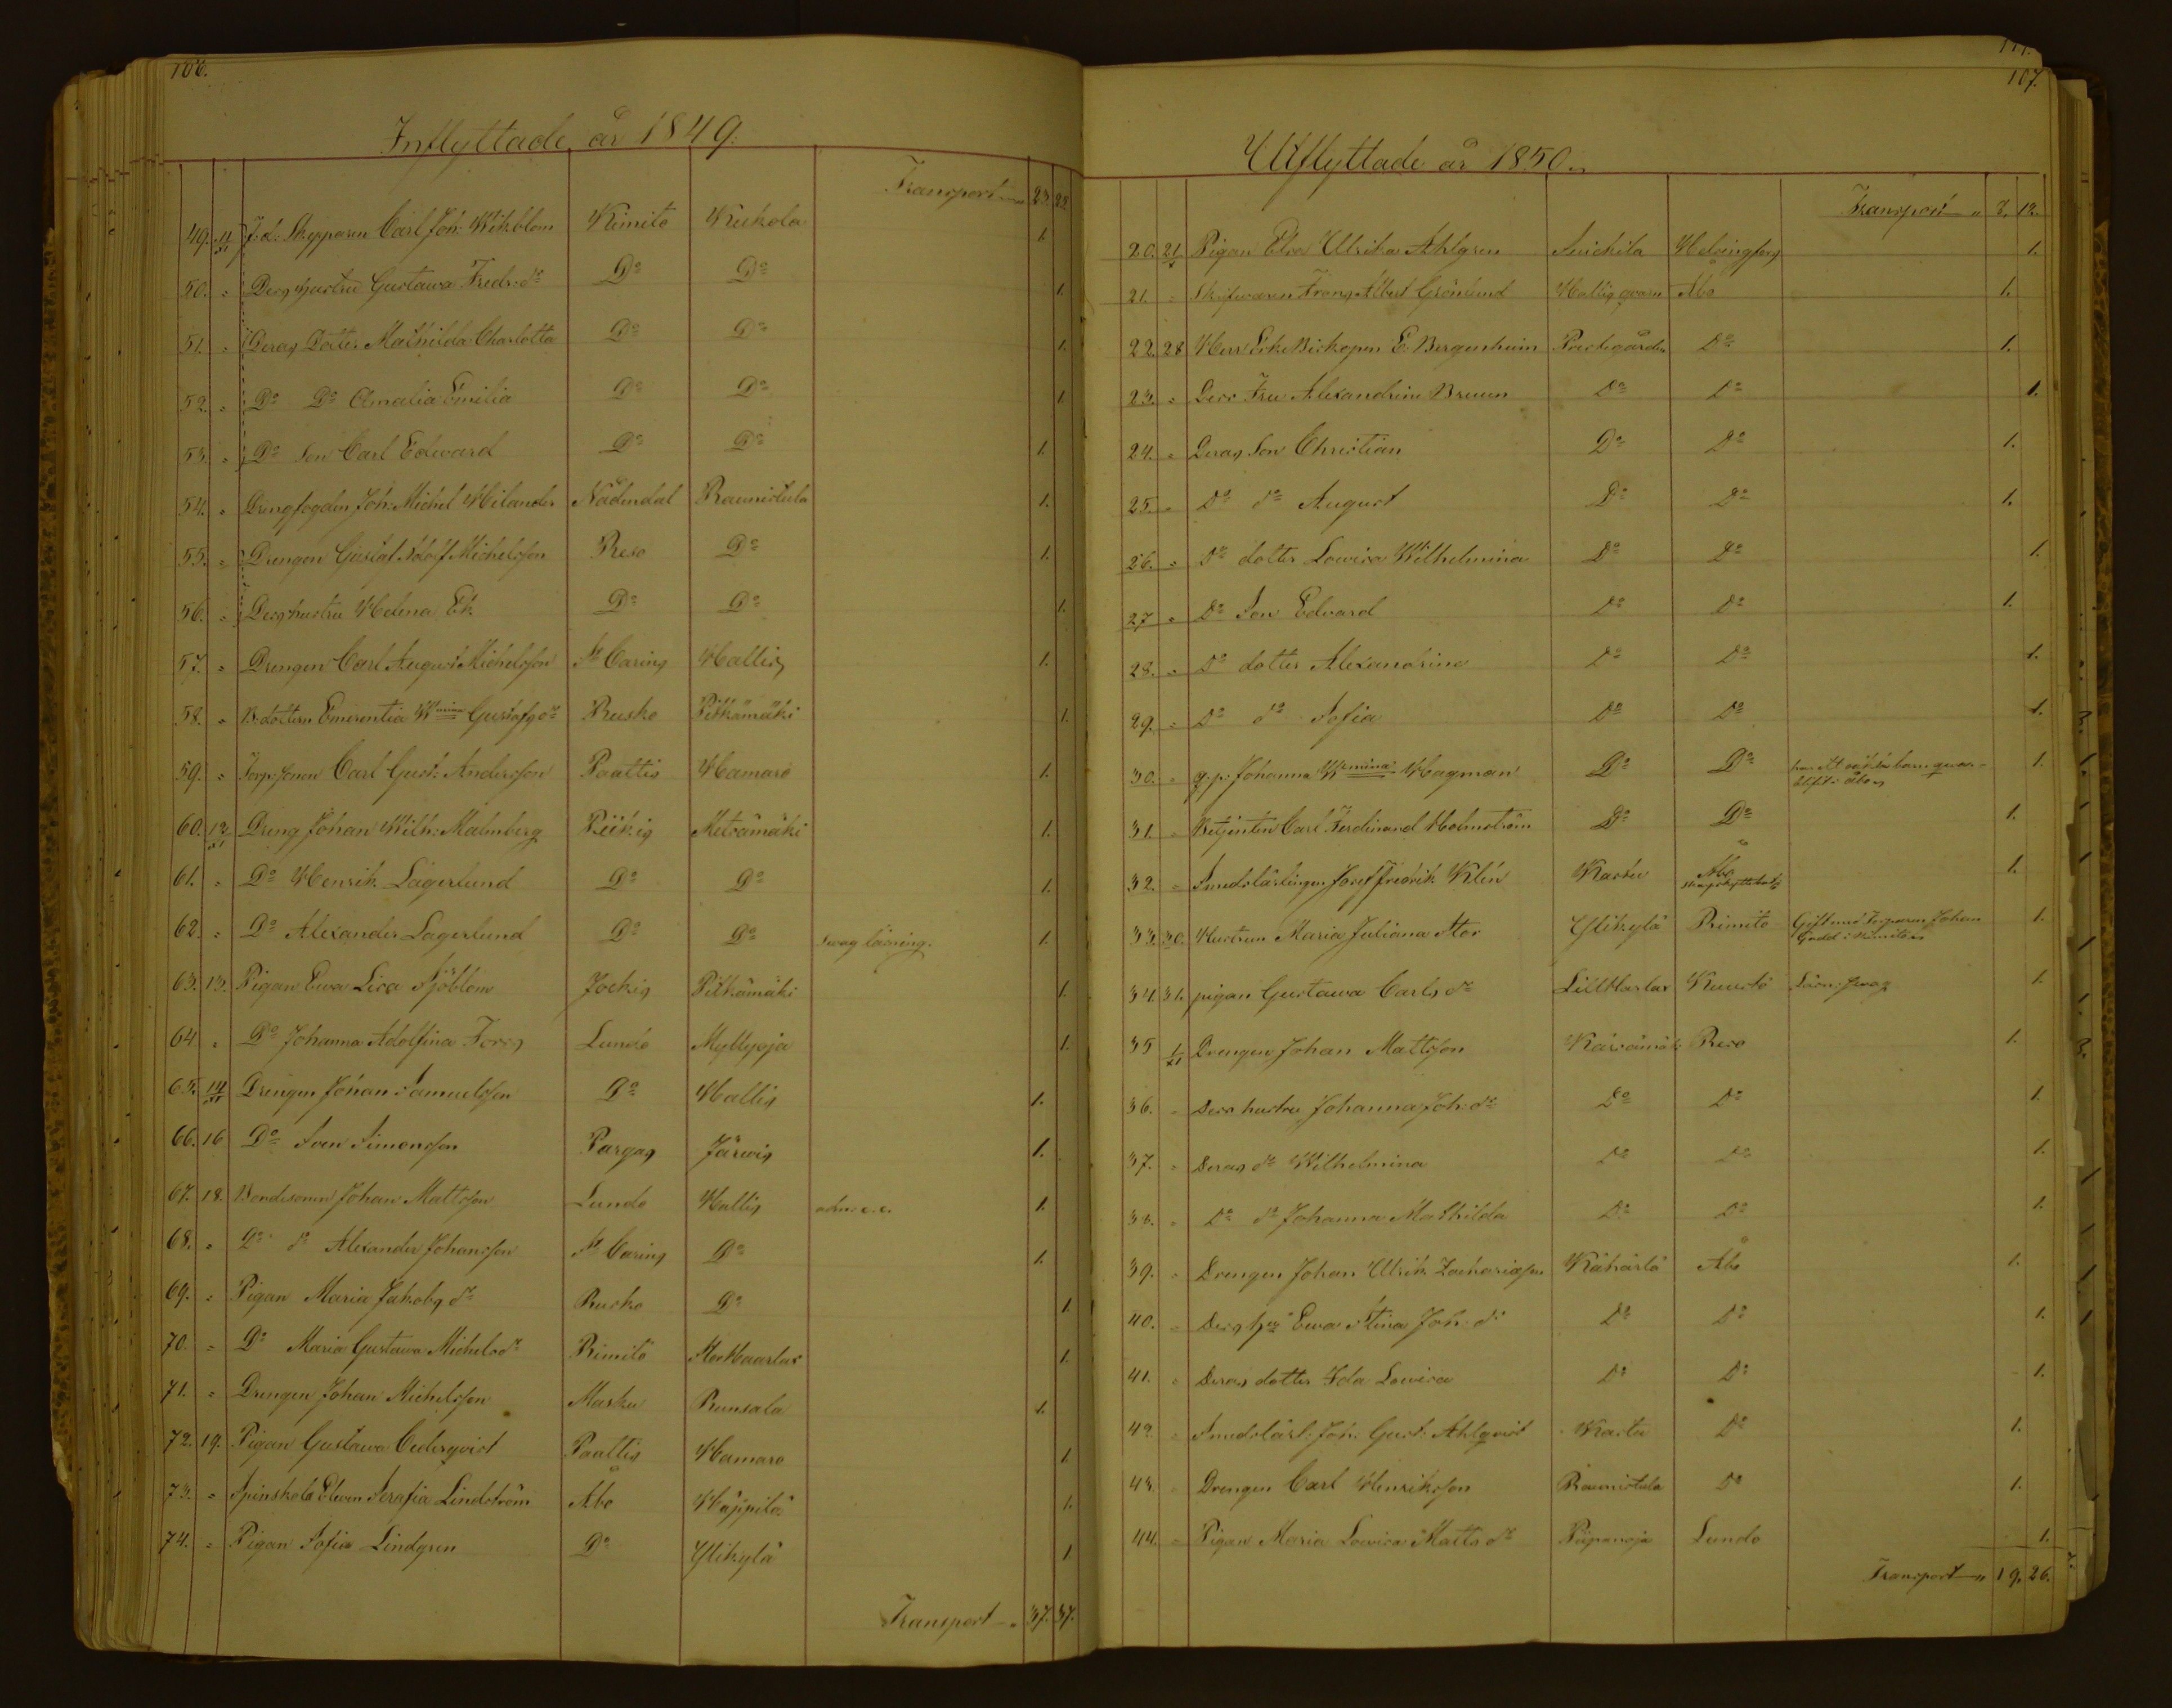 106.
Inflyttade år 1849.
Transport 23. 22
49. 11/XI F.d. Skepparen Carl Joh. Wikblom Kimito Kukola 1.
50. " Dess hustru Gustawa Fredr. dr Do Do 1.
51. " Deras Dotter Mathilda Charlotta Do Do 1.
52. " Do Do Amalia Emilia Do Do 1.
53. " Do Son Carl Edward Do Do 1.
54. " Drengfogden Joh. Michel Helander Nådendal Raunistula 1.
55. " Drengen Gustaf Adolf Michelsson Reso Do 1.
56. " Dess hustru Helena Ek Do Do 1.
57. " Drengen Carl August Michelsson St Carins Hallis 1.
58. " B. dottern Emerentia Wmina Gustafs dr Rusko Pitkämäki 1.
59. " Torp. sonen Carl Gust. Andersson Paattis Hamaro 1.
60. 12/XI Dreng Johan Wilh. Malmberg Piikis Metsämäki 1.
61. " Do Henrik Lagerlund Do Do 1.
62. " Do Alexander Lagerlund Do Do swag läsning. 1.
63. 13. Pigan Ewa Lisa Sjöblom Jockis Pitkämäki 1.
64 " Do Johanna Adolfina Forss Lundo Myllyoja 1.
65. 14/XI Drengen Johan Samuelsson Do Hallis 1.
66. 16 Do Sven Simonsson Pargas Järwis 1.
67. 18. Bondesonen Johan Mattsson Lundo Hallis adm. s.c. 1.
68. " Do do Alexander Johansson St Carins Do 1.
69. " Pigan Maria Jakobs dr Rusko Do 1.
70. " Do Maria Gustawa Michels dr Rimito StorHaarlax 1.
71. " Drengen Johan Michelsson Masku Runsala 1.
72. 19. Pigan Gustawa Cederqvist Paattis Hamaro 1.
73. " Spinskola Eleven Serafia Lindström Åbo Wäppilä 1.
74. " Pigan Sofia Lindgren Do Ylikylä 1.
Transport 37. 37.
107.
Utflyttade år 1850.
Transport 7. 12.
20. 21/X Pigan Elsa Ulrika Ahlgren Suickila Helsingfors 1.
21. " Skrifwaren Frans Albert Grönlund Hallis qvarn Åbo 1.
22. 28 Herr ErkeBiskopen E. Bergenheim Prestgården Do 1.
23. " Dess Fru Alexandrine Bruun Do Do 1.
24. " Deras Son Christian Do Do 1.
25. " Do do August Do Do 1.
26. " Do dotter Lowisa Wilhelmina Do Do 1.
27 " Do Son Edvard Do Do 1.
28. " Do dotter Alexandrina Do Do 1.
29. " Do do Sofia Do Do 1.
30. " g.p. Johanna Wmina Hagman Do Do 1.
31. " Betjenten Carl Ferdinand Holmström Do Do 1.
32. " Smedslärlingen Josef Fredrik Klén Kastu Åbo 1.
33. 30. Hustrun Maria Juliana Stor Ylikylä Rimito Gift med Torparen Johan 1.
Gadd i Rimito
34. 31. pigan Gustawa Carls dr LillHarlax Kuusto Läsn. swag 1.
35 1/XI Drengen Johan Mattsson Käräämäki Reso 1.
36. " Dess hustru Johanna Joh. dr Do Do 1.
37. " Deras dr Wilhelmina Do Do 1.
38. " Do do Johanna Mathilda Do Do 1.
39. " Drengen Johan Ulrik Zachariasson Kähärlä Åbo 1.
40. " Dess hu Ewa Stina Joh. dr Do Do 1.
41. " Deras dotter Ida Lowisa Do Do 1.
42. " Smedslärl. Joh. Gust. Ahlqvist Kastu Do 1.
43. " Drengen Carl Henriksson Raunistula Do 1.
44. " Pigan Maria Lowisa Matts dr Piipanoja Lundo 1.
Transport 19. 26.